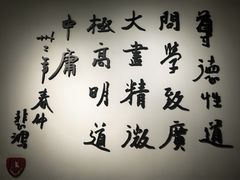 尊德性道
問學致廣
大盡精微
極高明道
中庸
卅二年春
悲鴻